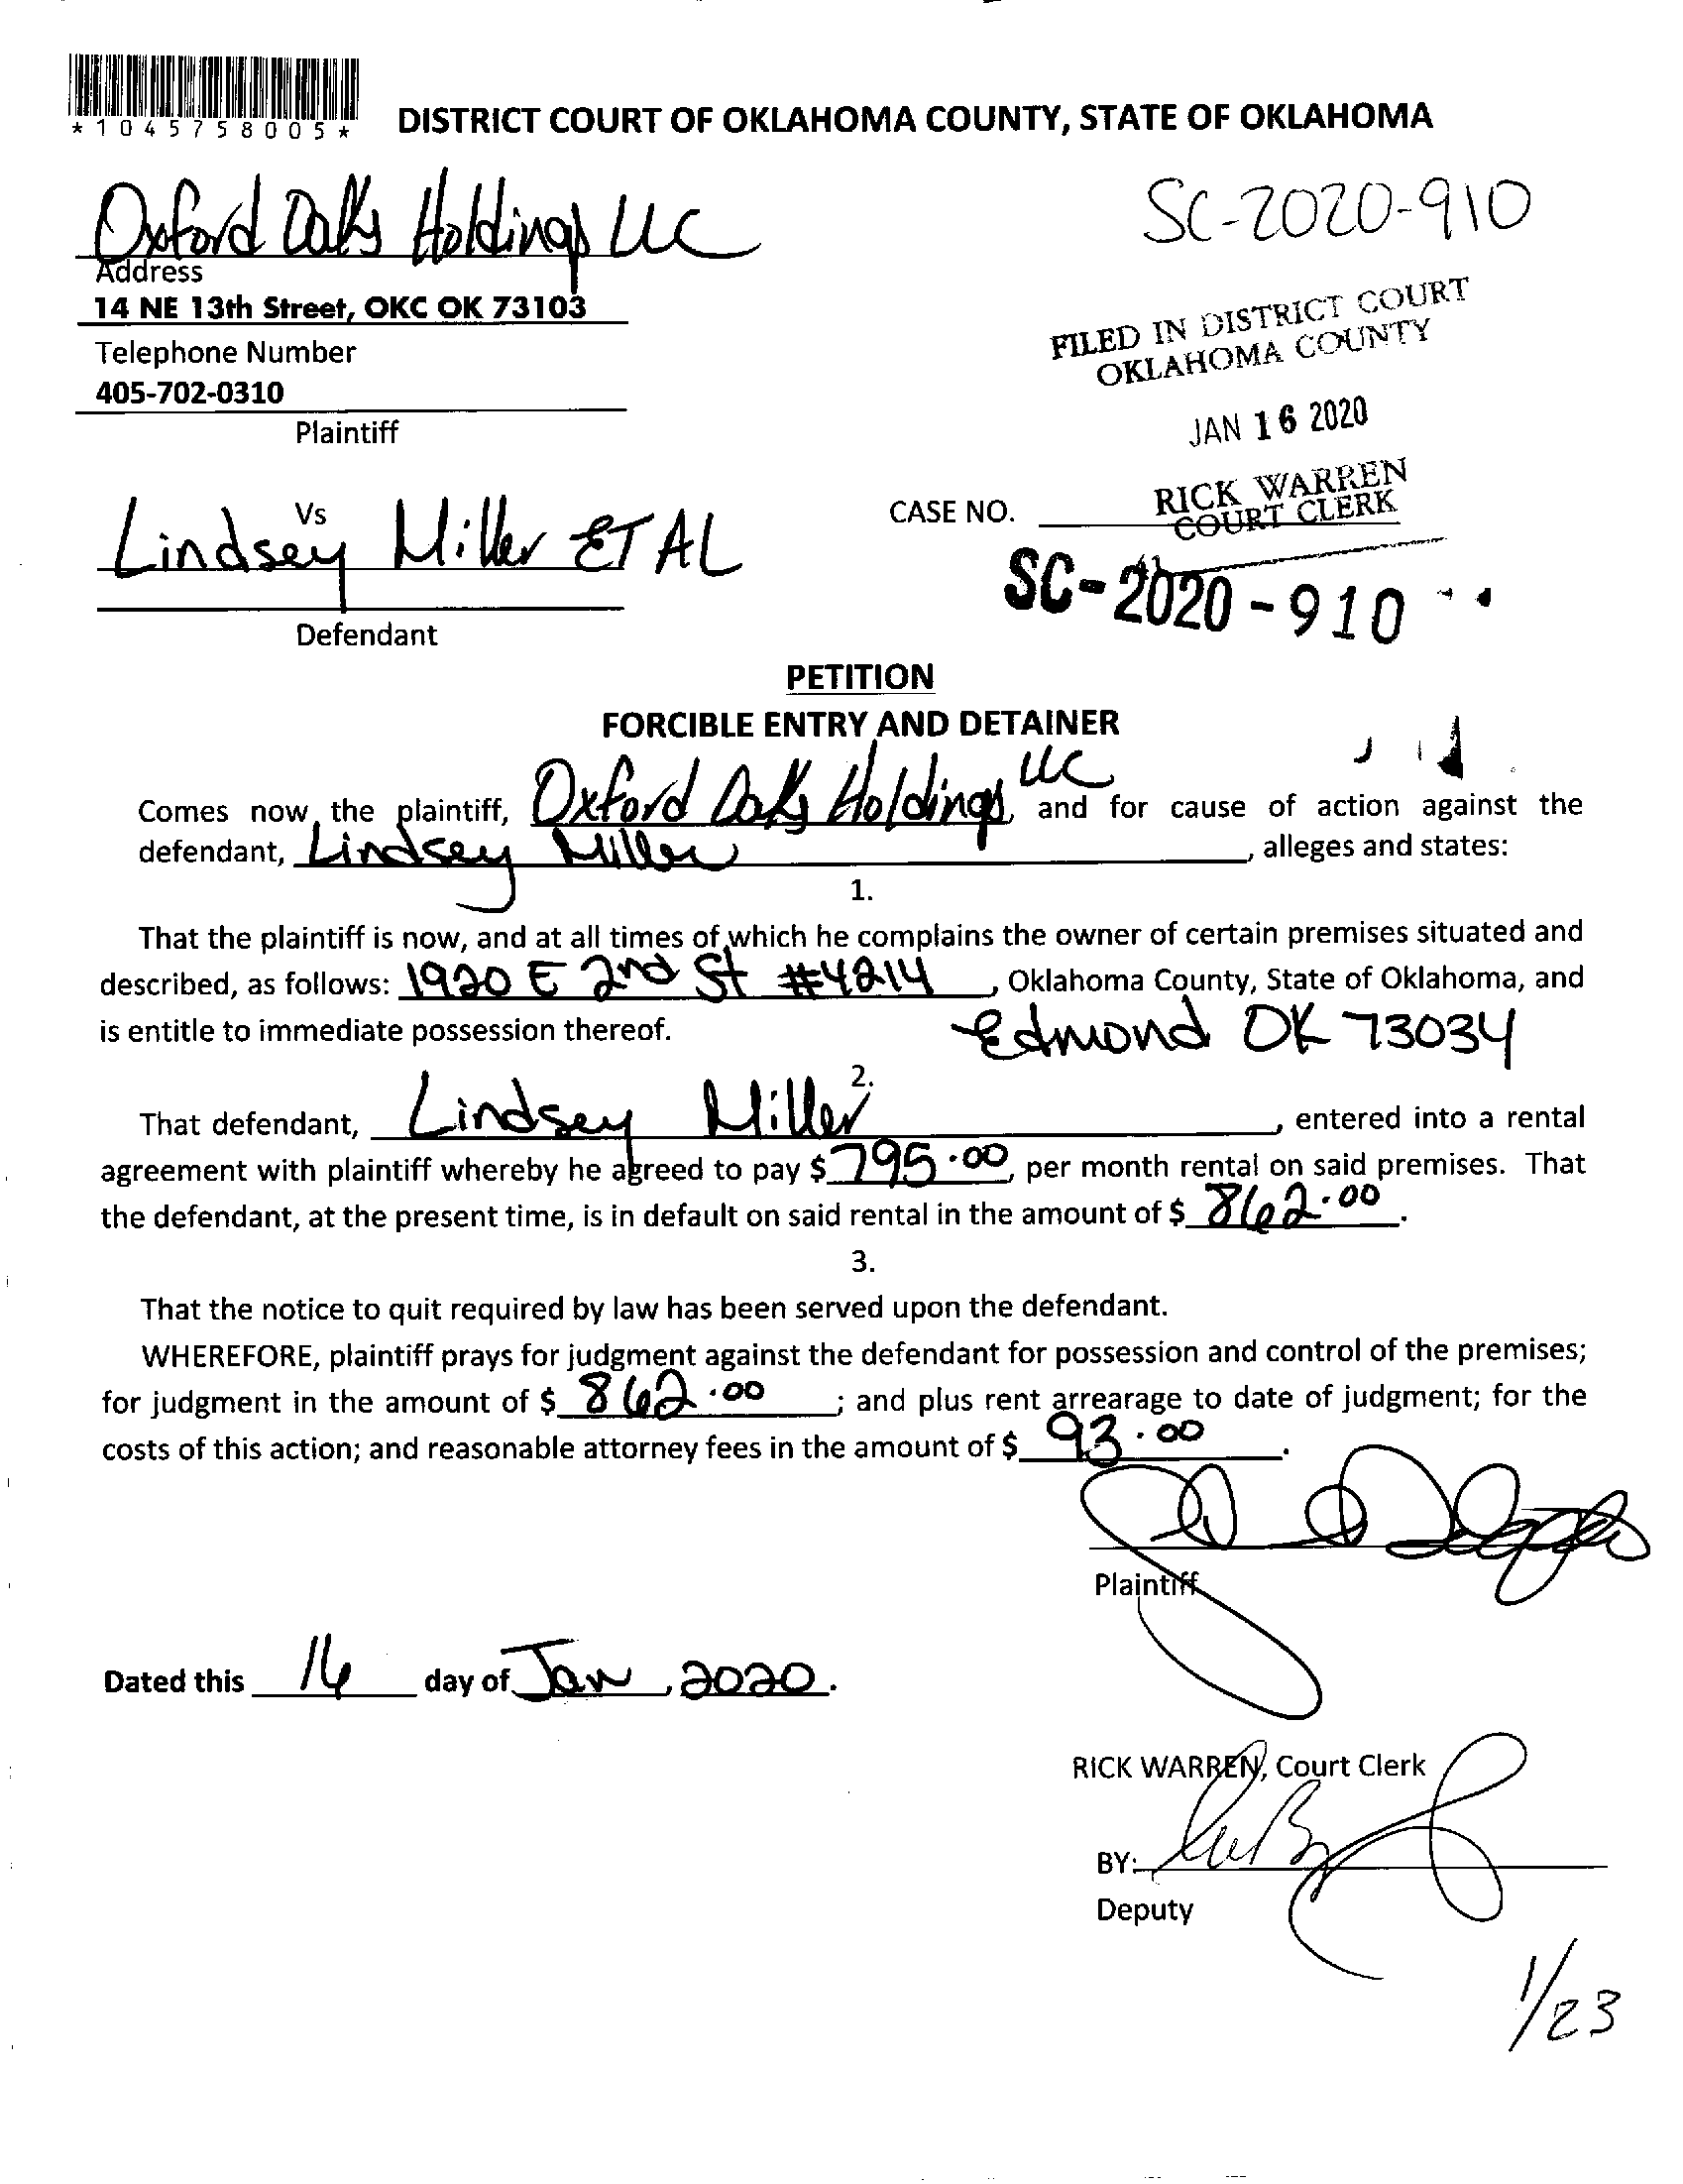 *1045758005*
DISTRICT COURT OF OKLAHOMA COUNTY, STATE OF OKLAHOMA
Oxford Oaks Holdings LLC
SC-2020-910
Address
14 NE 13th Street, OKC OK 73103
FILED IN DISTRICT COURT
OKLAHOMA COUNTY
Telephone Number
405-702-0310
JAN 16 2020
Plaintiff
RICK WARREN
COURT CLERK
Vs
CASE NO.
Lindsey Miller ET AL
SC-2020-910
Defendant
PETITION
FORCIBLE ENTRY AND DETAINER
Comes now, the plaintiff, Oxford Oaks Holdings, LLC and for cause of action against the
defendant, Lindsey Miller, alleges and states:
1.
That the plaintiff is now, and at all times of which he complains the owner of certain premises situated and
described, as follows: 1920 E 2nd St #4214, Oklahoma County, State of Oklahoma, and
is entitle to immediate possession thereof. Edmond OK 73034
2.
That defendant, Lindsey Miller, entered into a rental
agreement with plaintiff whereby he agreed to pay $ 795.00, per month rental on said premises. That
the defendant, at the present time, is in default on said rental in the amount of $ 862.00.
3.
That the notice to quit required by law has been served upon the defendant.
WHEREFORE, plaintiff prays for judgment against the defendant for possession and control of the premises;
for judgment in the amount of $ 862.00; and plus rent arrearage to date of judgment; for the
costs of this action; and reasonable attorney fees in the amount of $ 93.00.
Plaintiff
Dated this 16 day of Jan, 2020.
RICK WARREN, Court Clerk
BY:
Deputy
1/23